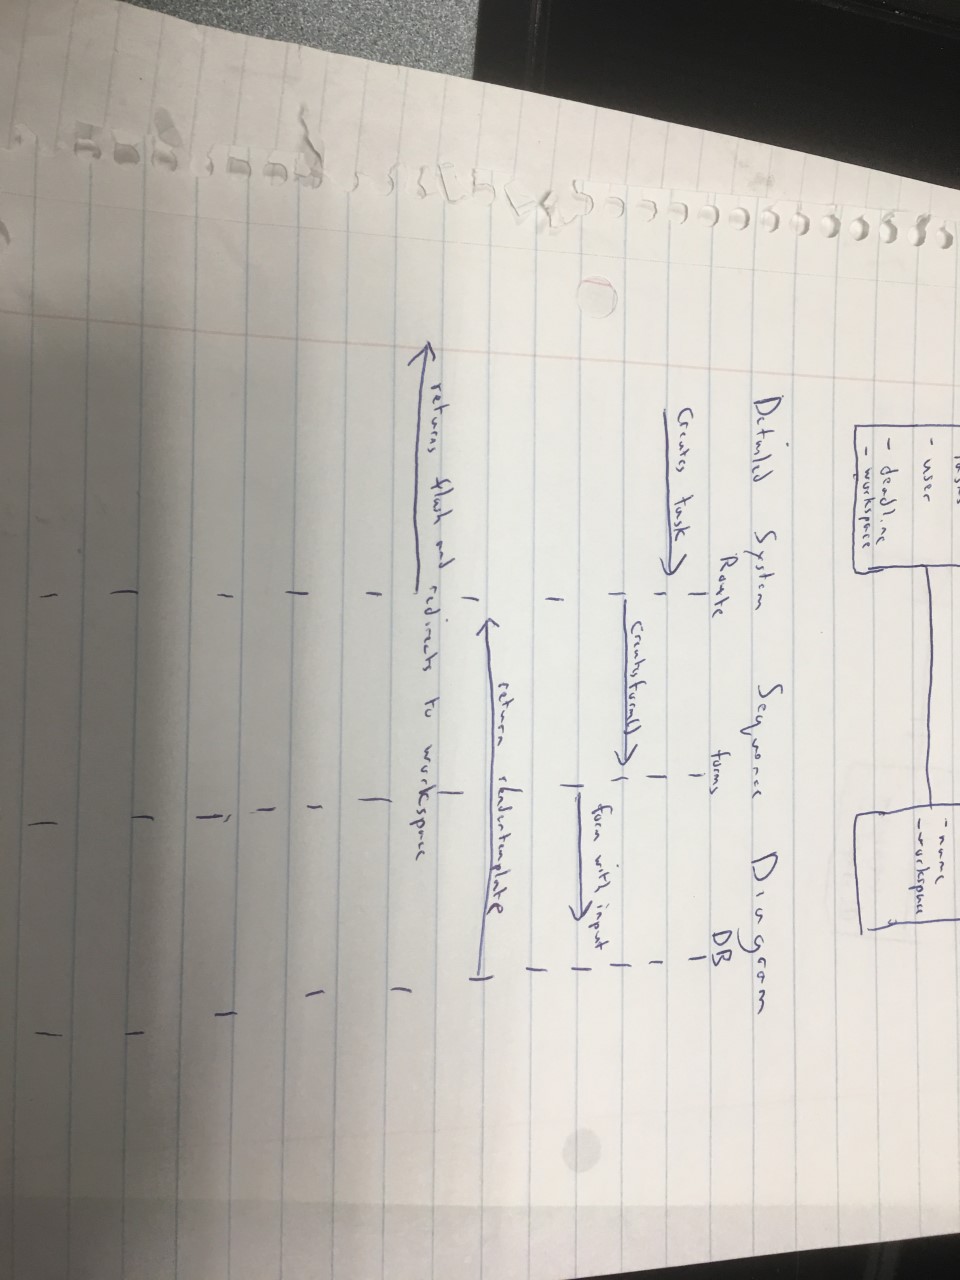 - user
- name
- workspace
- deadline
- workspace
Detailed System Sequence Diagram
Route forms DB
Creates task
creates form()
form with input
return rendertemplate
returns flash and redirects to workspace